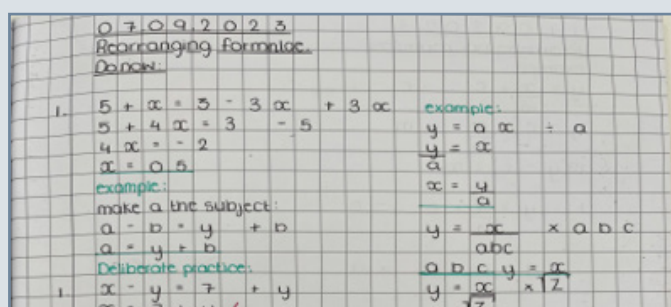 07092023
Rearranging formulae.
Do now:
1. 5 + x = 3 - 3x + 3x
5 + 4x = 3 - 5
4x = - 2
x = 0 5
example:
make a the subject:
a - b = y + b
a = y + b
Deliberate practice:
1. x - y = 7 + y
example:
y = a x ÷ a
y/a = x
x = y/a
y = x/abc × a b c
a b c y = x
y = x/√z × √z